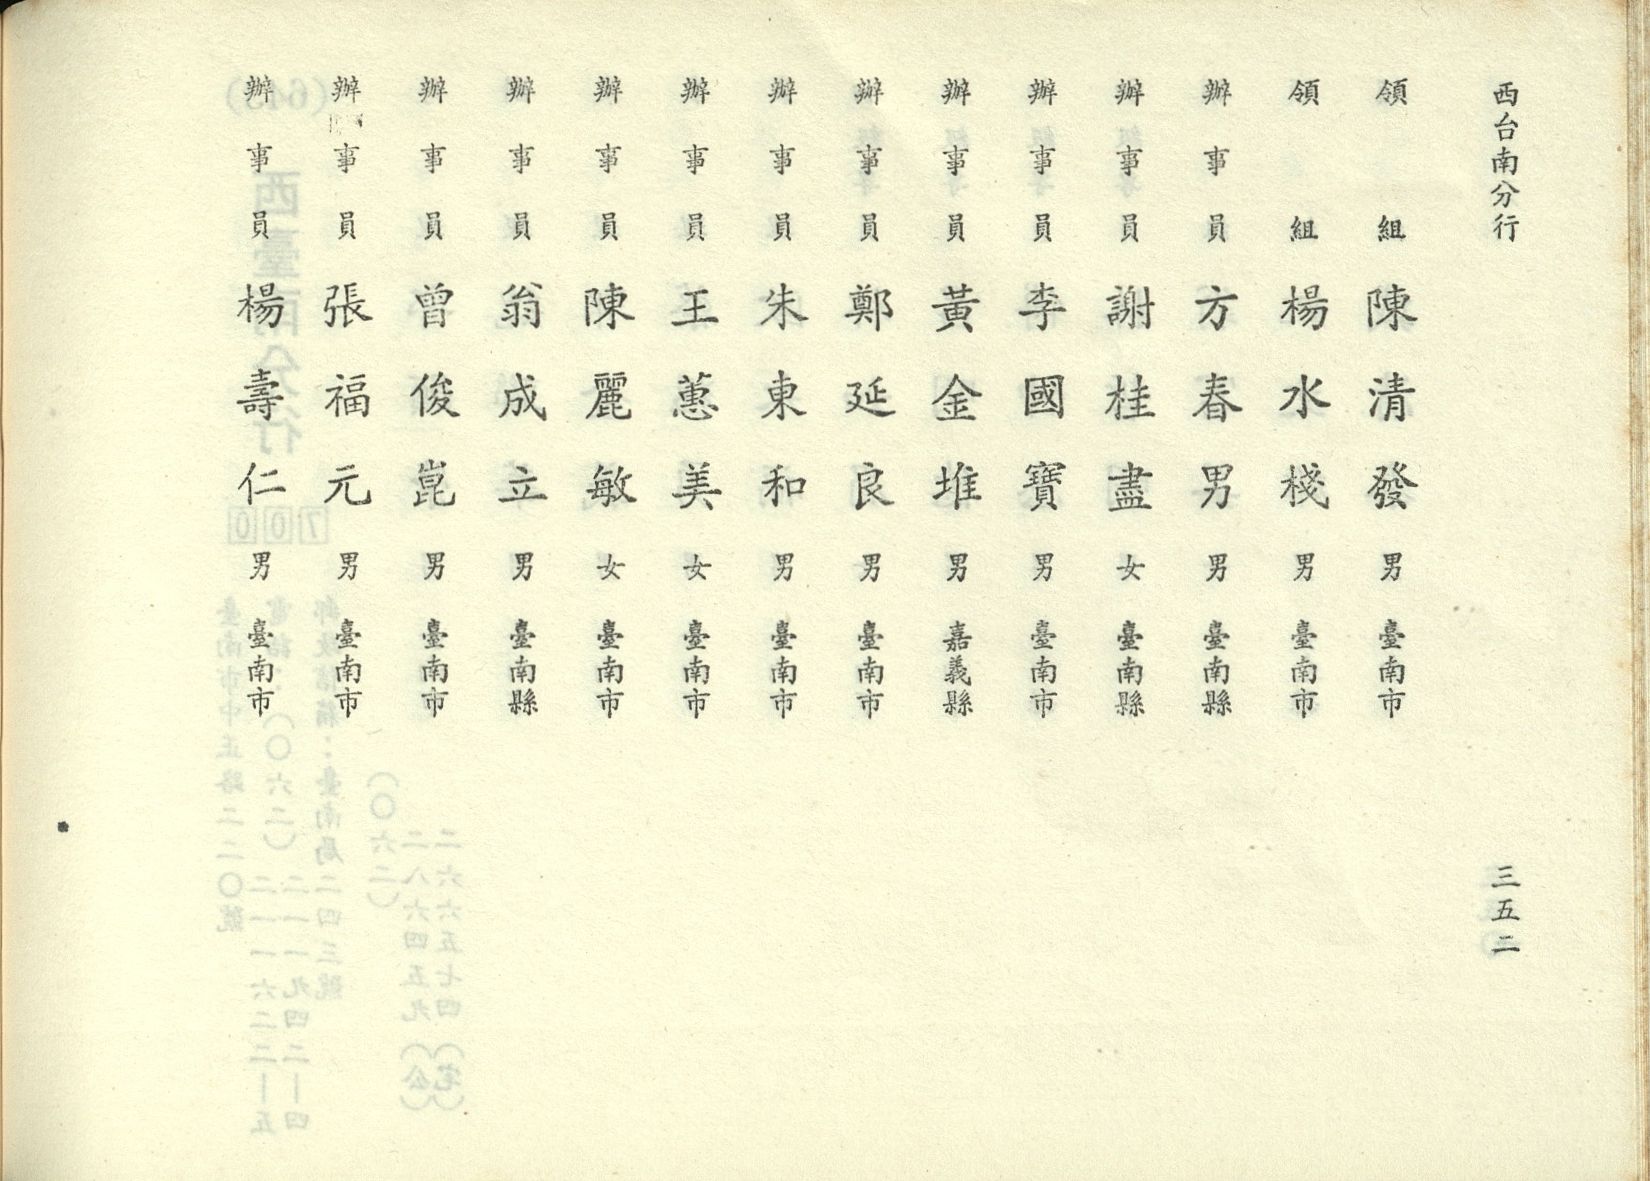 西台南分行
領組陳清發男臺南市
領組楊水棧男臺南市
辦事員方春男男臺南縣
辦事員謝桂盡女臺南縣
辦事員李國寶男臺南市
辦事員黃金堆男嘉義縣
辦事員鄭延良男臺南市
辦事員朱東和男臺南市
辦事員王蕙美女臺南市
辦事員陳麗敏女臺南市
辦事員翁成立男臺南縣
辦事員曾俊崑男臺南市
辦事員張福元男臺南市
辦事員楊壽仁男臺南市
三五二